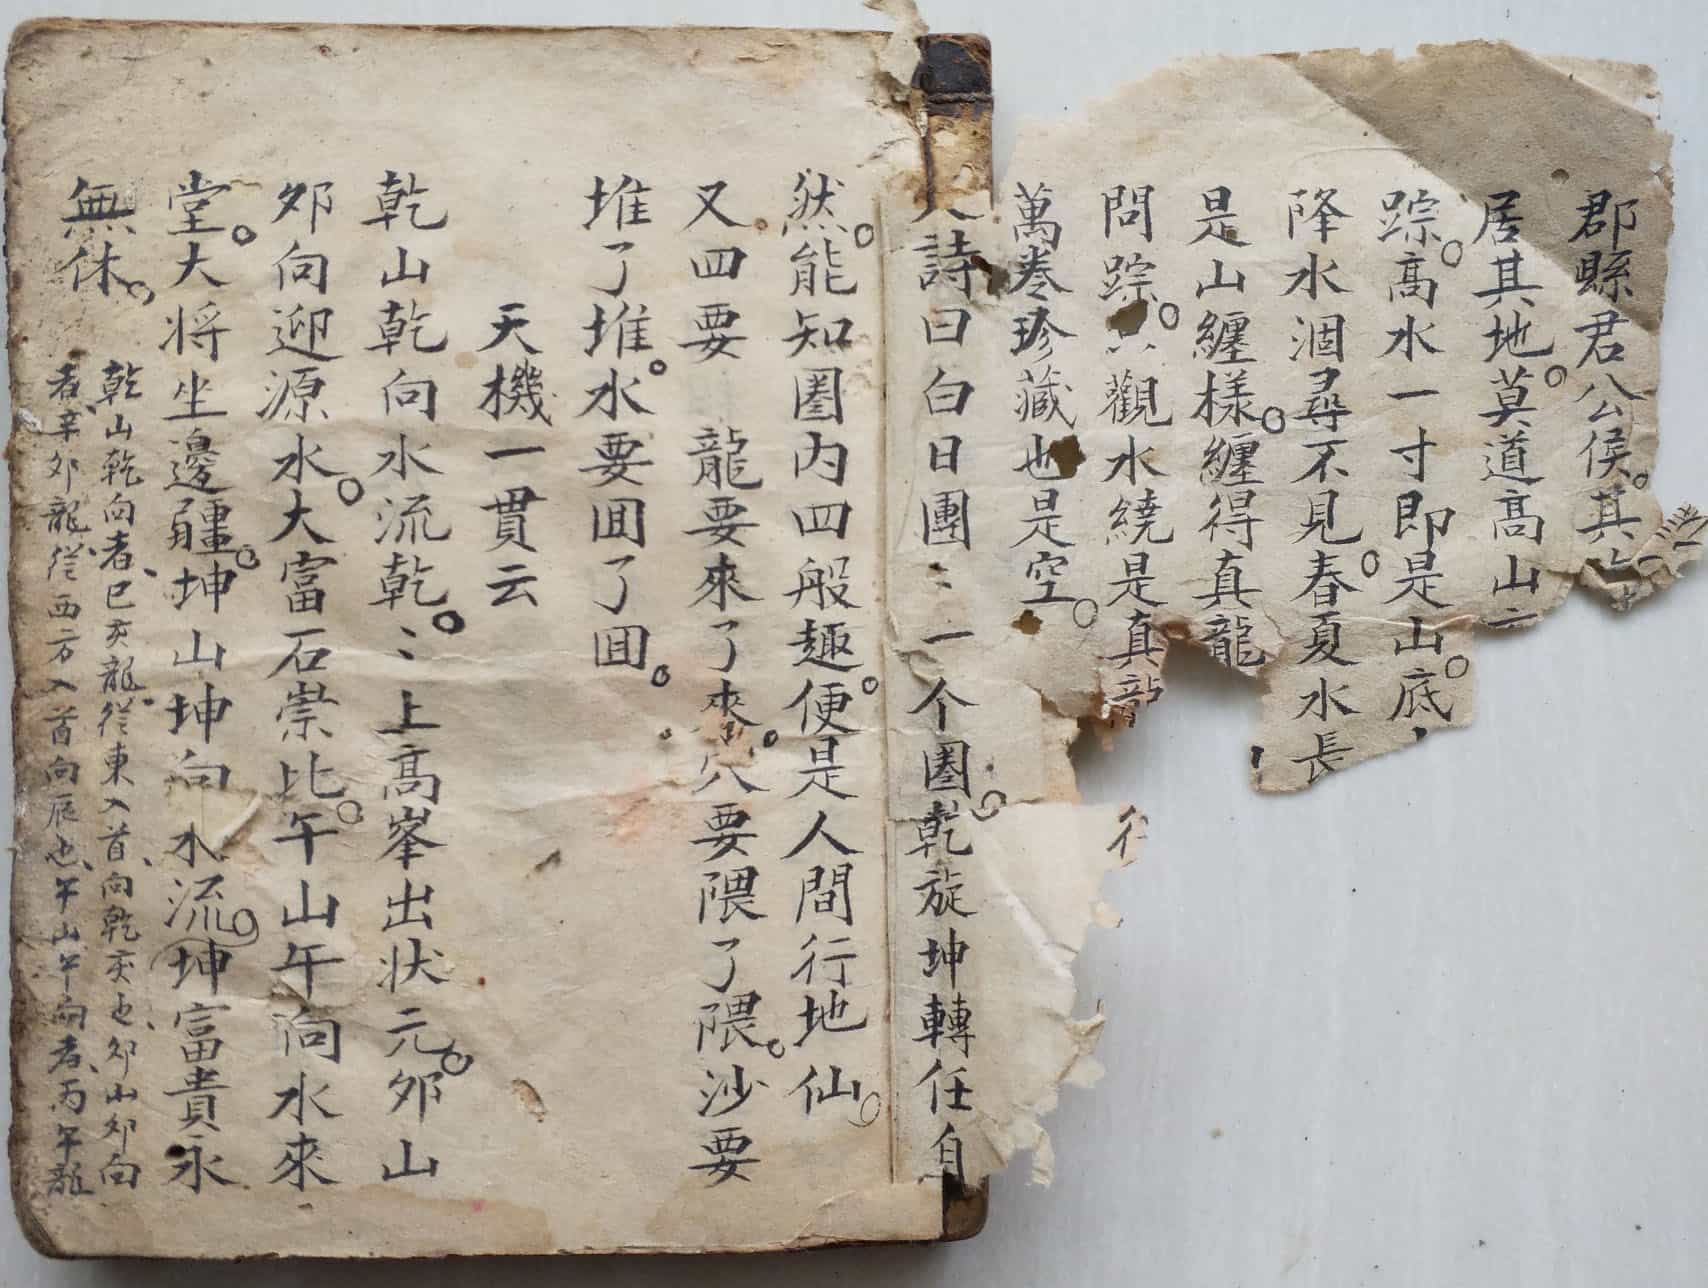 郡縣君公侯其
居其地莫道高山
踪高水一寸即是山底
降水涸尋不見春夏水長
是山纏樣纏得真龍
問踪觀水繞是真龍
行
萬卷珍藏也是空
詩曰白日團〻一个圈乾旋坤轉任自
然能知圈内四般趣便是人間行地仙
又四要 龍要來了來穴要隈了隈沙要
堆了堆水要囬了囬
天機一貫云
乾山乾向水流乾〻上高峯出状元夘山
夘向迎源水大富石崇比午山午向水來
堂大将坐邊疆坤山坤向水流坤富貴永
無休
乾山乾向者巳亥龍從東入首向乾亥也夘山夘向
者辛夘龍從西方入首向辰也午山午向者丙午龍